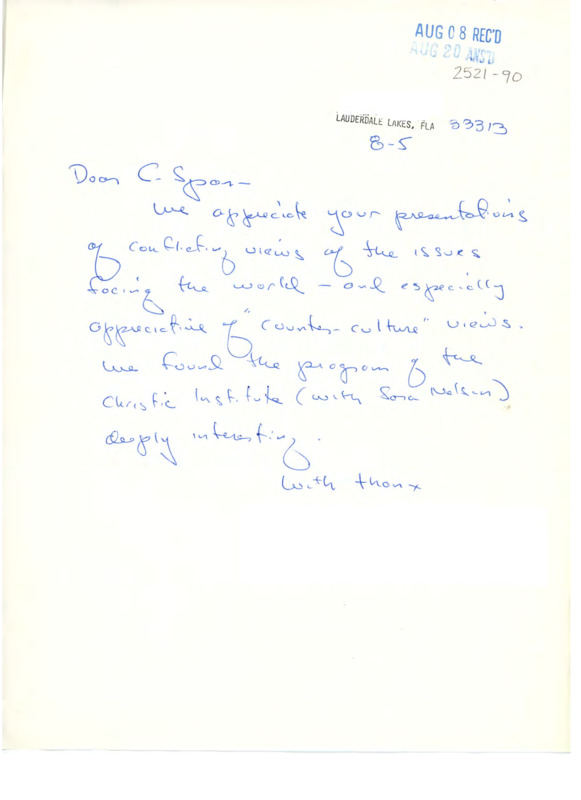 AUG 08 REC'D
AUG 20 ANS'D
2521-90
LAUDERDALE LAKES, FLA 33313
8-5
Dear C-Span-
We appreciate your presentations
of conflicting views of the issues
facing the world - and especially
appreciative of "counter-culture" views.
We found the program of the
Christic Institute (with Sara Nelson)
deeply interesting.
With thanx